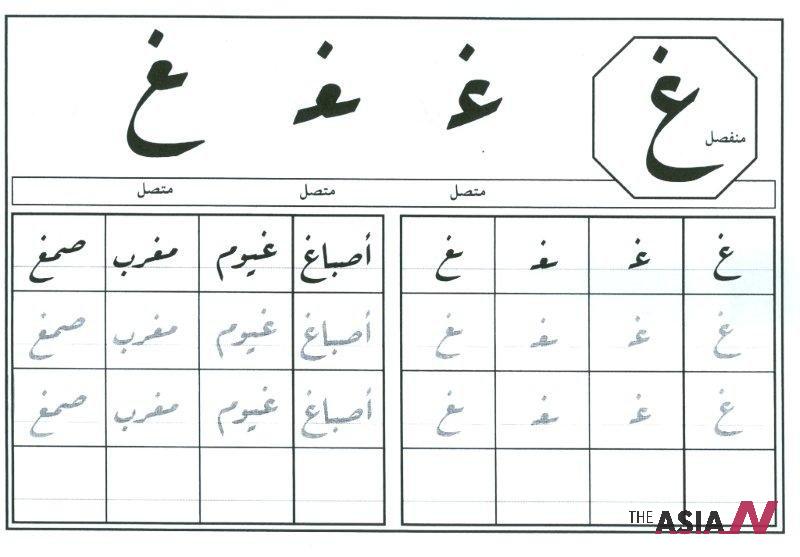 غ غـ ـغـ ـغ
منفصل
متصل متصل متصل
غ غـ ـغـ ـغ أصباغ غيوم مغرب صمغ
غ غـ ـغـ ـغ أصباغ غيوم مغرب صمغ
غ غـ ـغـ ـغ أصباغ غيوم مغرب صمغ
THE ASIAN